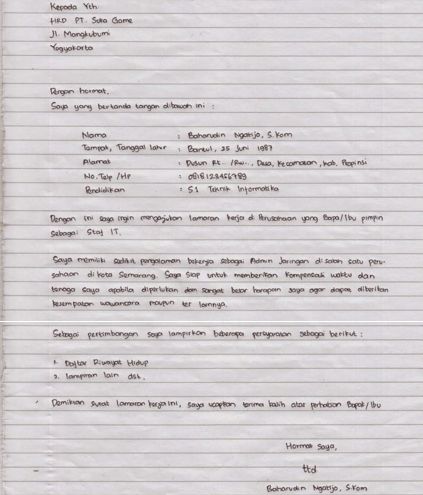 Kepada Yth
HRD PT. Suka Game
Jl. Mangkubumi
Yogyakarta
Dengan hormat,
Saya yang bertanda tangan dibawah ini :
Nama : Baharudin Ngatijo, S.Kom
Tempat, Tanggal lahir : Bantul, 25 Juni 1987
Alamat : Dusun Rt.. /Rw.., Desa, Kecamatan, Kab, Propinsi
No. Telp /HP : 0818123456789
Pendidikan : S1 Teknik Informatika
Dengan ini saya ingin mengajukan lamaran kerja di Perusahaan yang Bapa/Ibu pimpin
Sebagai Staf IT.
Saya memiliki sedikit pengalaman bekerja sebagai Admin Jaringan di salah satu peru-
sahaan di kota Semarang. Saya Siap untuk memberikan kompensasi waktu dan
tenaga saya apabila diperlukan dan sangat besar harapan saya agar dapat diberikan
kesempatan wawancara maupun tes lainnya.
Sebagai pertimbangan saya lampirkan beberapa persyaratan sebagai berikut :
1. Daftar Riwayat Hidup
2. lampiran lain dst.
Demikian surat lamaran kerja ini, saya ucapkan terima kasih atas perhatian Bapak/Ibu
Hormat Saya,
ttd
Baharudin Ngatijo, S.Kom